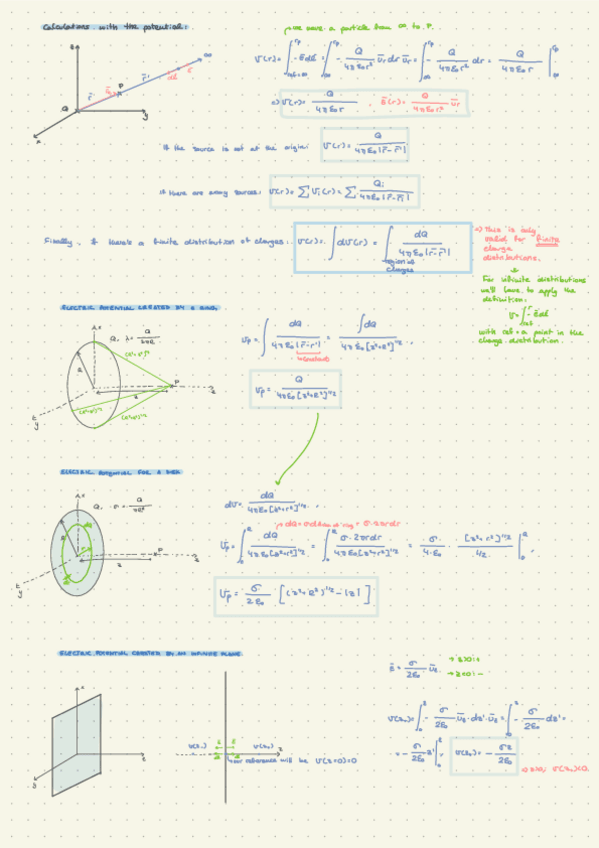 Calculations with the potential:
↱ we move a particle from ∞ to P.
V(r) = ∫_{ref=∞}^{r_p} -E̅dl̅ = ∫_∞^{r_p} - Q/(4πε₀r²) u̅r dr u̅r = ∫_∞^{r_p} - Q/(4πε₀r²) dr = Q/(4πε₀r) |_∞^{r_p}
z ∞ P r̅' dl̅ u̅r r̅ Q y x
⇒ V(r) = Q/(4πε₀r) , E̅(r) = Q/(4πε₀r²) u̅r
If the source is not at the origin: V(r) = Q/(4πε₀|r̅-r̅'|)
If there are many sources: V(r) = ∑ Vi(r) = ∑ Qi/(4πε₀|r̅-r̅i|)
Finally, if there's a finite distribution of charges: V(r) = ∫dV(r) = ∫_{region of charges} dQ/(4πε₀|r̅-r̅'|)
⇒ This is only
valid for finite
charge
distributions.
For infinite distributions
we'll have to apply the
definition:
V = ∫_{ref}^{r} -E̅dl̅
with ref = a point in the
charge distribution
ELECTRIC POTENTIAL CREATED BY A RING:
Q, λ = Q/(2πR)
(z²+R²)^{1/2}
R P z
(z²+R²)^{1/2} (z²+R²)^{1/2}
Vp = ∫ dQ/(4πε₀|r̅-r̅'|) = ∫dQ/(4πε₀[z²+R²]^{1/2}) ,
constant
Vp = Q/(4πε₀[z²+R²]^{1/2})
ELECTRIC POTENTIAL FOR A DISK
Q, σ = Q/(πR²)
R P z
dV = dQ/(4πε₀[z²+r²]^{1/2}) ,
↱ dQ = σ dA = σ·2πrdr
Vp = ∫_0^R dQ/(4πε₀[z²+r²]^{1/2}) = ∫_0^R σ·2πrdr/(4πε₀[z²+r²]^{1/2}) = σ/(4·ε₀) · [z²+r²]^{1/2}/(1/2) |_0^R ,
Vp = σ/(2ε₀) · [(z²+R²)^{1/2} - |z|]
ELECTRIC POTENTIAL CREATED BY AN INFINITE PLANE
E̅ = σ/(2ε₀) u̅z → z>0:+
→ z<0:-
V(z-) V(z+) z
our reference will be V(z=0)=0
V(z+) = ∫_0^z - σ/(2ε₀) u̅z·dz'·u̅z = ∫_0^z - σ/(2ε₀) dz' =
= - σ/(2ε₀) z' |_0^z , V(z+) = - σz/(2ε₀)
⇒ z>0; V(z+)<0.